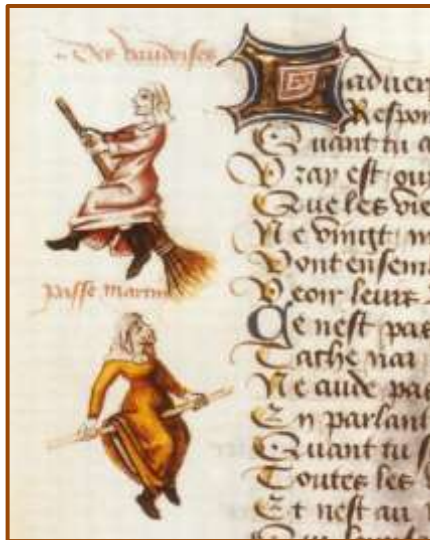 Des vaudoises
passe martin
L aduer
Respon
Quant tu a
Vray est ou
Que les vie
Ne vingt
Vont ensem
Veoir leurs
Ce nest pas
Cache
Ne cuide pas
En parlant
Quant tu
Toutes les
Et nest au